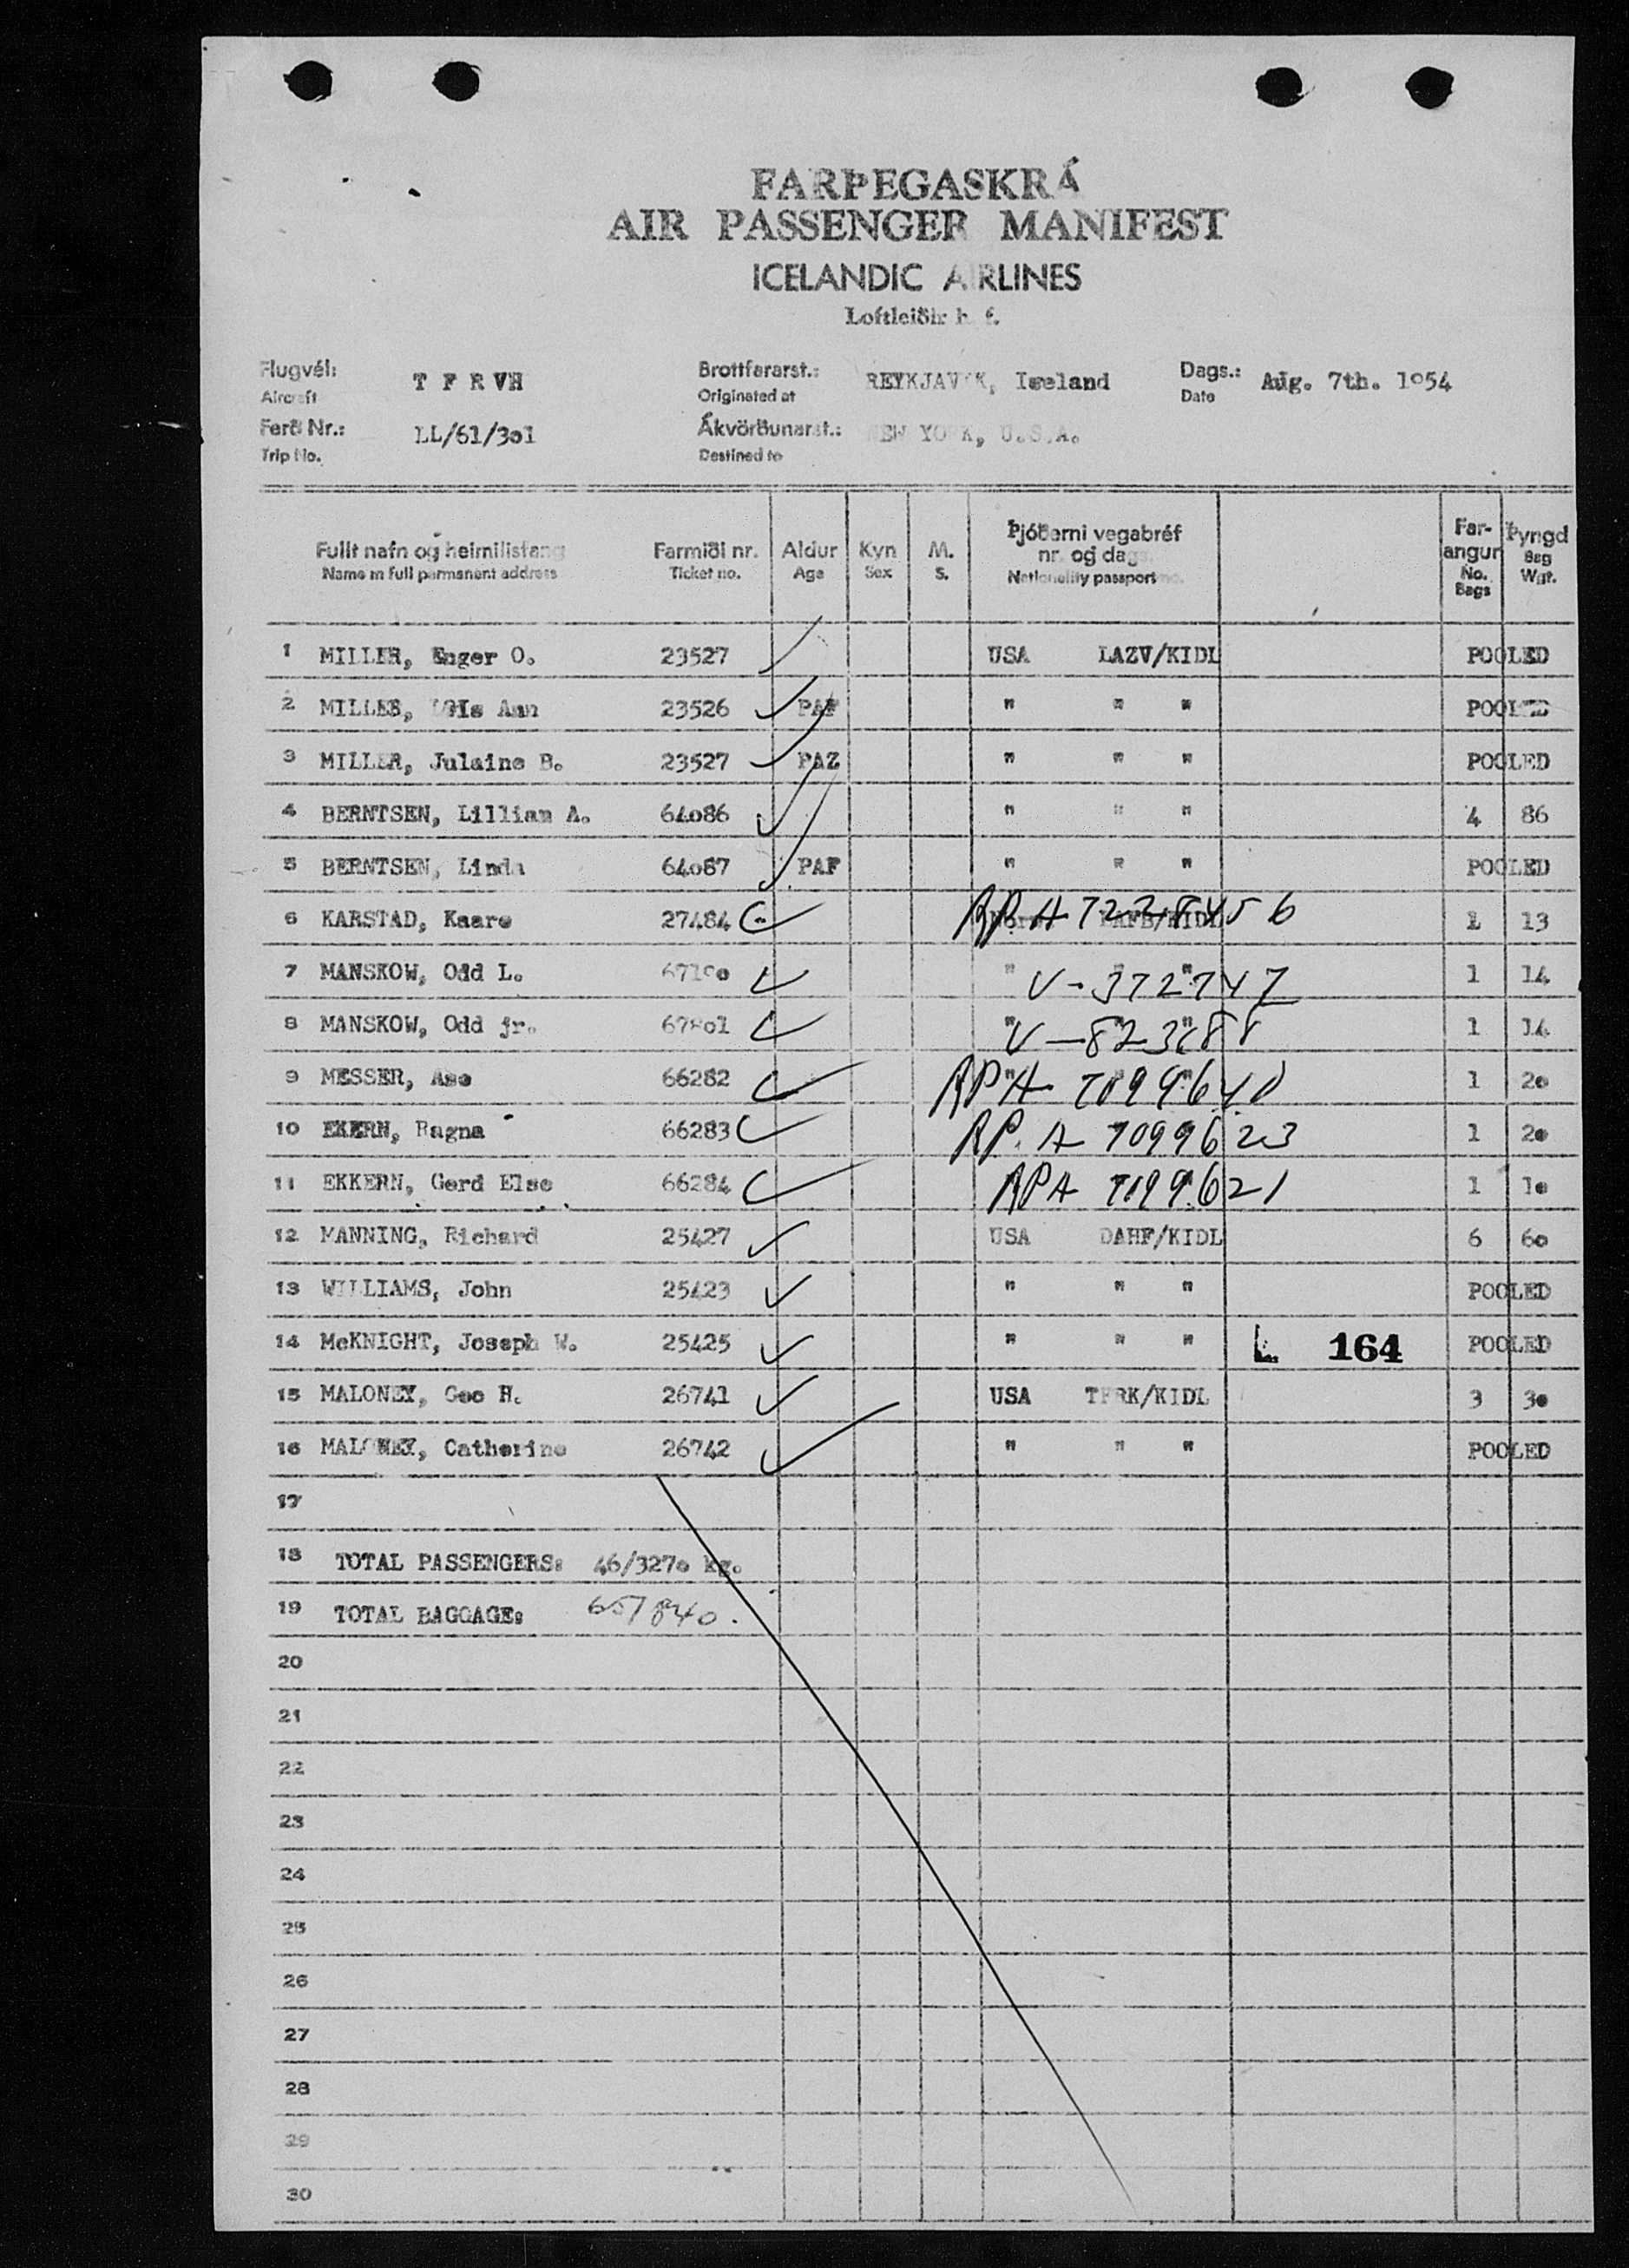 FARÞEGASKRÁ
AIR PASSENGER MANIFEST
ICELANDIC AIRLINES
Loftleiðir h. f.
Flugvél: T F R VH Brottfararst.: REYKJAVIK, Iseland Dags.: Aug. 7th. 1954
Aircraft Originated at Date
Ferð Nr.: LL/61/3o1 Ákvörðunarst.: NEW YORK, U.S.A.
Trip No. Destined to
Fullt nafn og heimilisfang Farmiði nr. Aldur Kyn M. Þjóðerni vegabréf nr. og dags. Far-angur Þyngd
Name in full permanent address Ticket no. Age Sex S. Nationality passport no. No. Bags Bag Wgt.
1 MILLER, Enger O. 23527 USA LAZV/KIDL POOLED
2 MILLER, Ann 23526 PAF " " " POOLED
3 MILLER, Julaine B. 23527 PAZ " " " POOLED
4 BERNTSEN, Lillian A. 64o86 " " " 4 86
5 BERNTSEN, Linda 64o87 PAF " " " POOLED
6 KARSTAD, Kaare 27484 1 13
7 MANSKOW, Odd L. " " V-372747 1 14
8 MANSKOW, Odd jr. 678o1 " " 1 14
9 MESSER, Ase 66282 1 2o
10 EKERN, Ragna 66283 RP. A 7099623 1 2o
11 EKKERN, Gerd Else 66284 1 1o
12 MANNING, Richard 25427 USA DAHF/KIDL 6 6o
13 WILLIAMS, John 25423 " " " POOLED
14 McKNIGHT, Joseph W. 25425 " " " L 164 POOLED
15 MALONEY, Geo H. 26741 USA TFRK/KIDL 3 3o
16 MALONEY, Catherine 26742 " " " POOLED
17
18 TOTAL PASSENGERS: 46/327o kg.
19 TOTAL BAGGAGE:
20
21
22
23
24
25
26
27
28
29
30